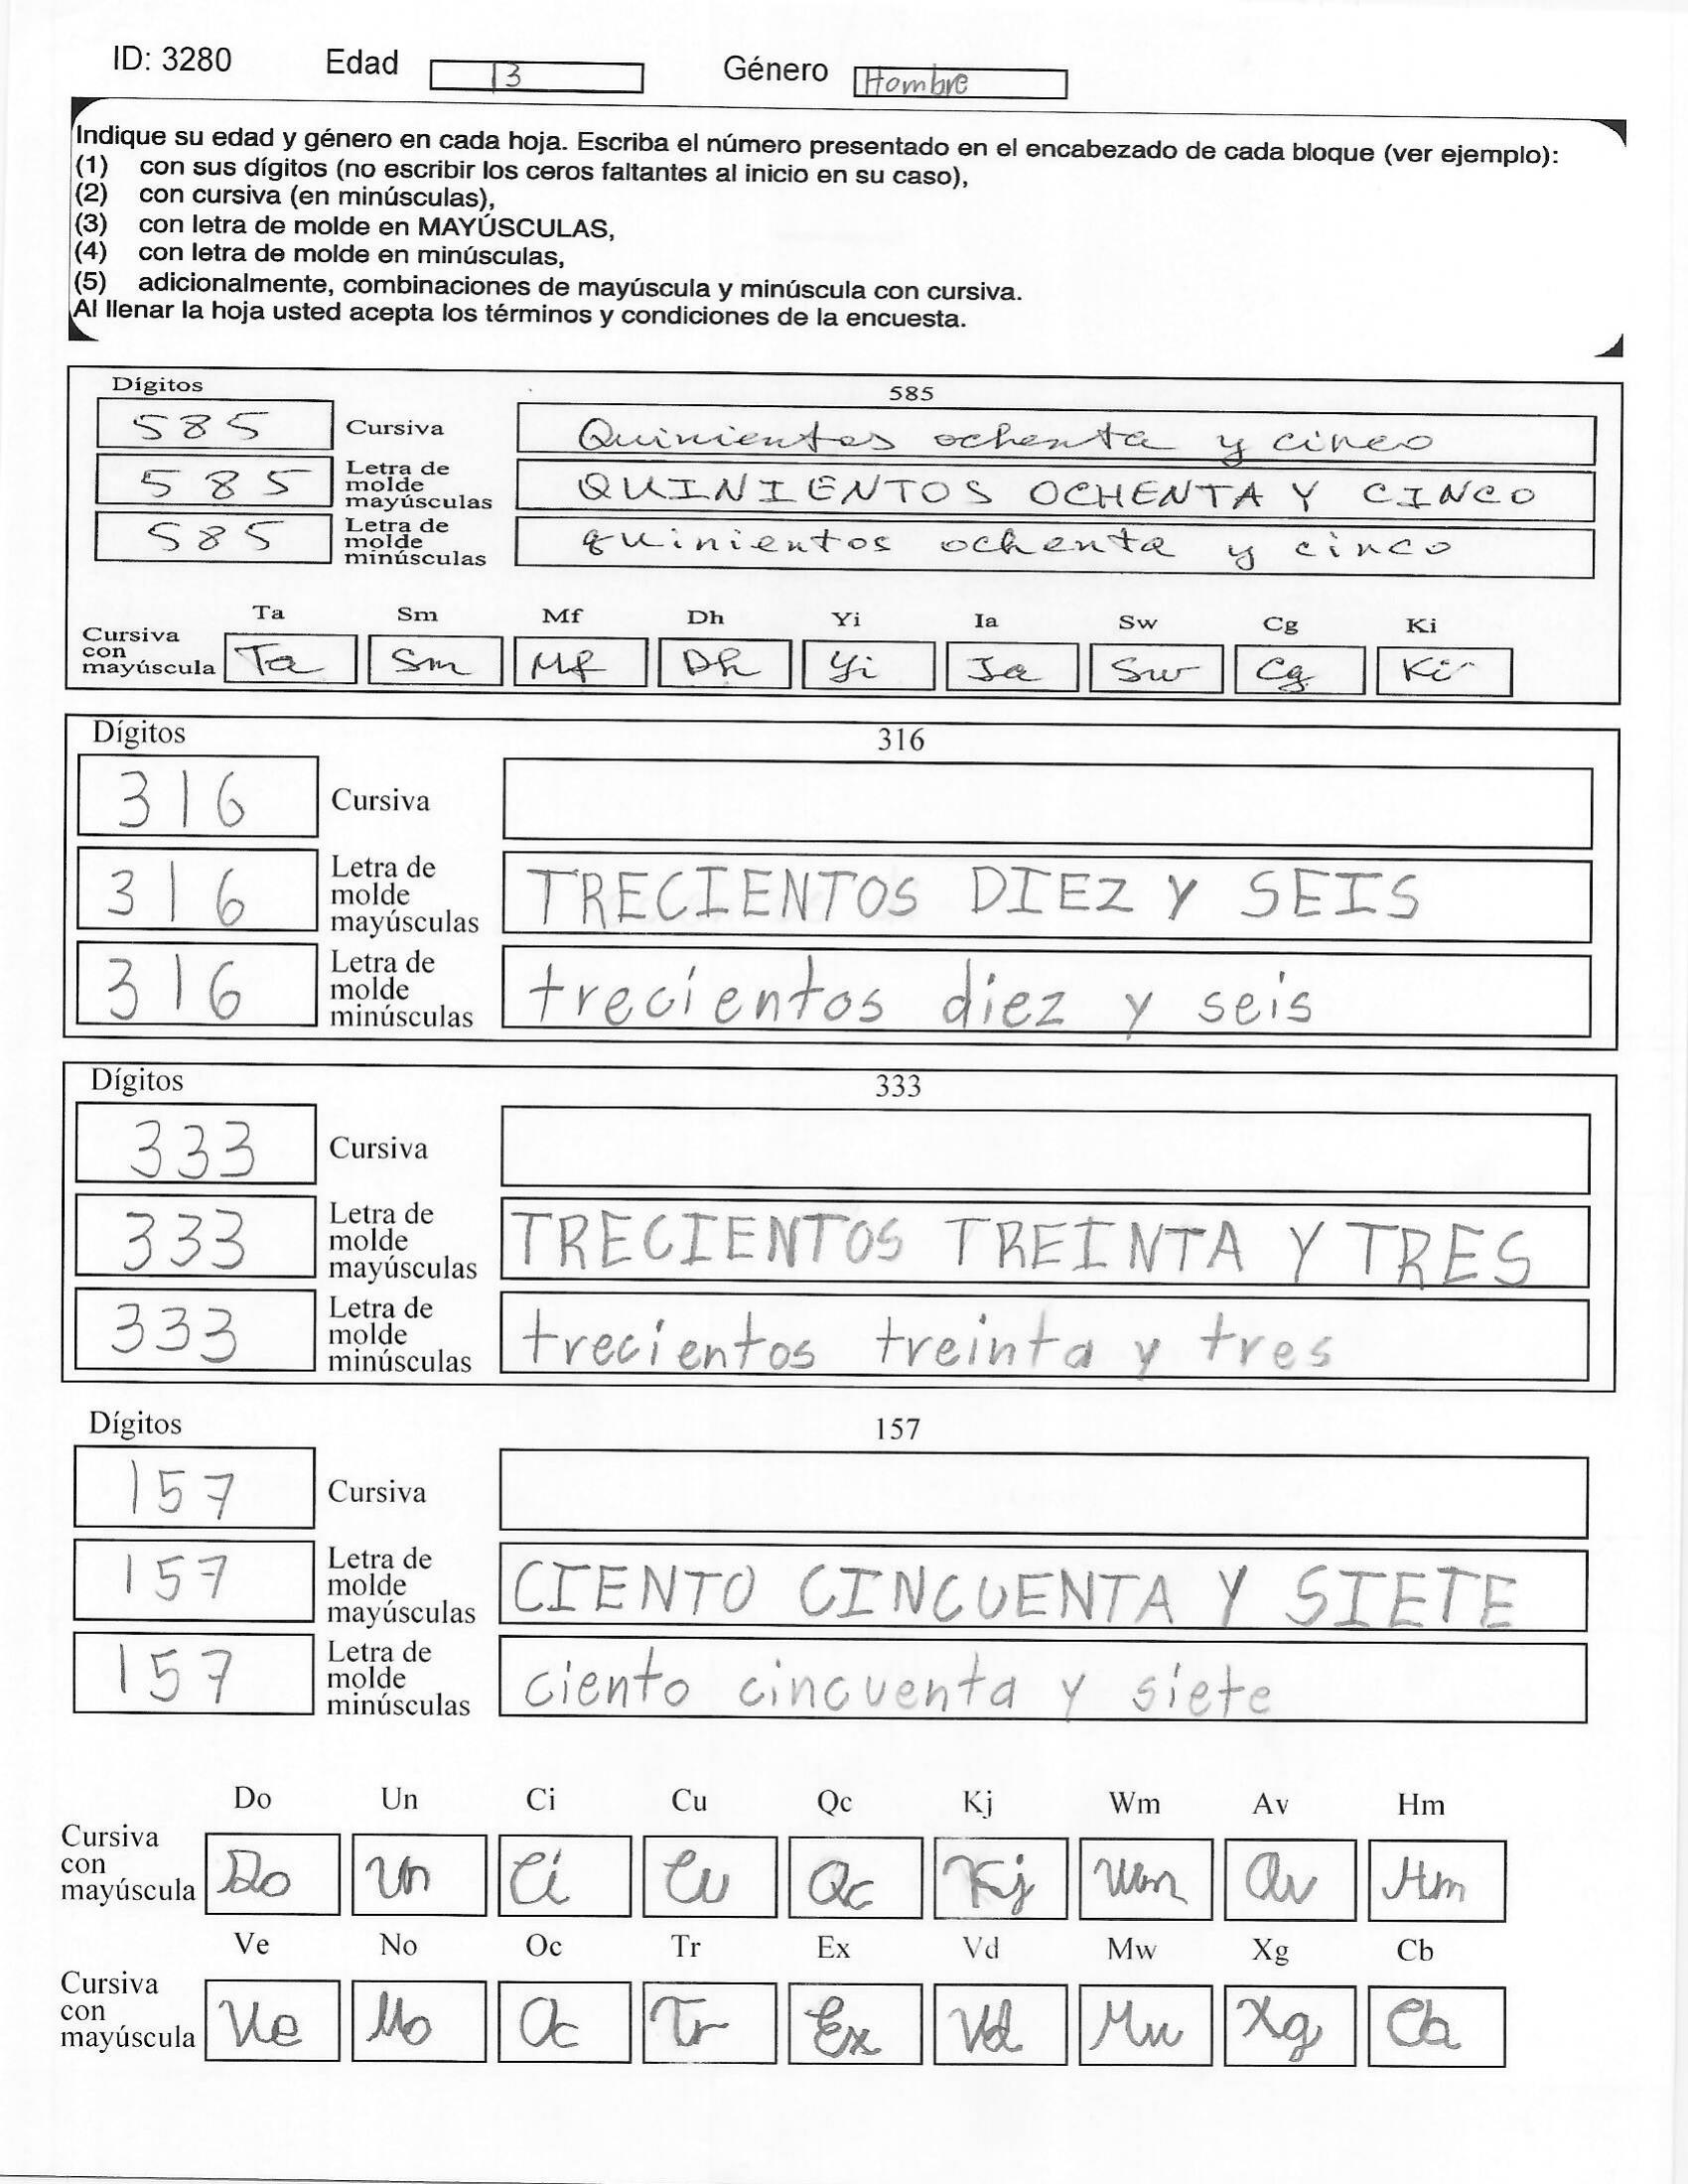 ID: 3280 Edad 13 Género Hombre
Indique su edad y género en cada hoja. Escriba el número presentado en el encabezado de cada bloque (ver ejemplo):
(1) con sus dígitos (no escribir los ceros faltantes al inicio en su caso),
(2) con cursiva (en minúsculas),
(3) con letra de molde en MAYÚSCULAS,
(4) con letra de molde en minúsculas,
(5) adicionalmente, combinaciones de mayúscula y minúscula con cursiva.
Al llenar la hoja usted acepta los términos y condiciones de la encuesta.
Dígitos 585
585 Cursiva Quinientos ochenta y cinco
585 Letra de molde mayúsculas QUINIENTOS OCHENTA Y CINCO
585 Letra de molde minúsculas quinientos ochenta y cinco
Ta Sm Mf Dh Yi Ia Sw Cg Ki
Cursiva con mayúscula Ta Sm Mf Dh Yi Ia Sw Cg Ki
Dígitos 316
316 Cursiva
316 Letra de molde mayúsculas TRECIENTOS DIEZ Y SEIS
316 Letra de molde minúsculas trecientos diez y seis
Dígitos 333
333 Cursiva
333 Letra de molde mayúsculas TRECIENTOS TREINTA Y TRES
333 Letra de molde minúsculas trecientos treinta y tres
Dígitos 157
157 Cursiva
157 Letra de molde mayúsculas CIENTO CINCUENTA Y SIETE
157 Letra de molde minúsculas ciento cincuenta y siete
Do Un Ci Cu Qc Kj Wm Av Hm
Cursiva con mayúscula Do Un Ci Cu Qc Kj Wm Av Hm
Ve No Oc Tr Ex Vd Mw Xg Cb
Cursiva con mayúscula Ve No Oc Tr Ex Vd Mw Xg Cb